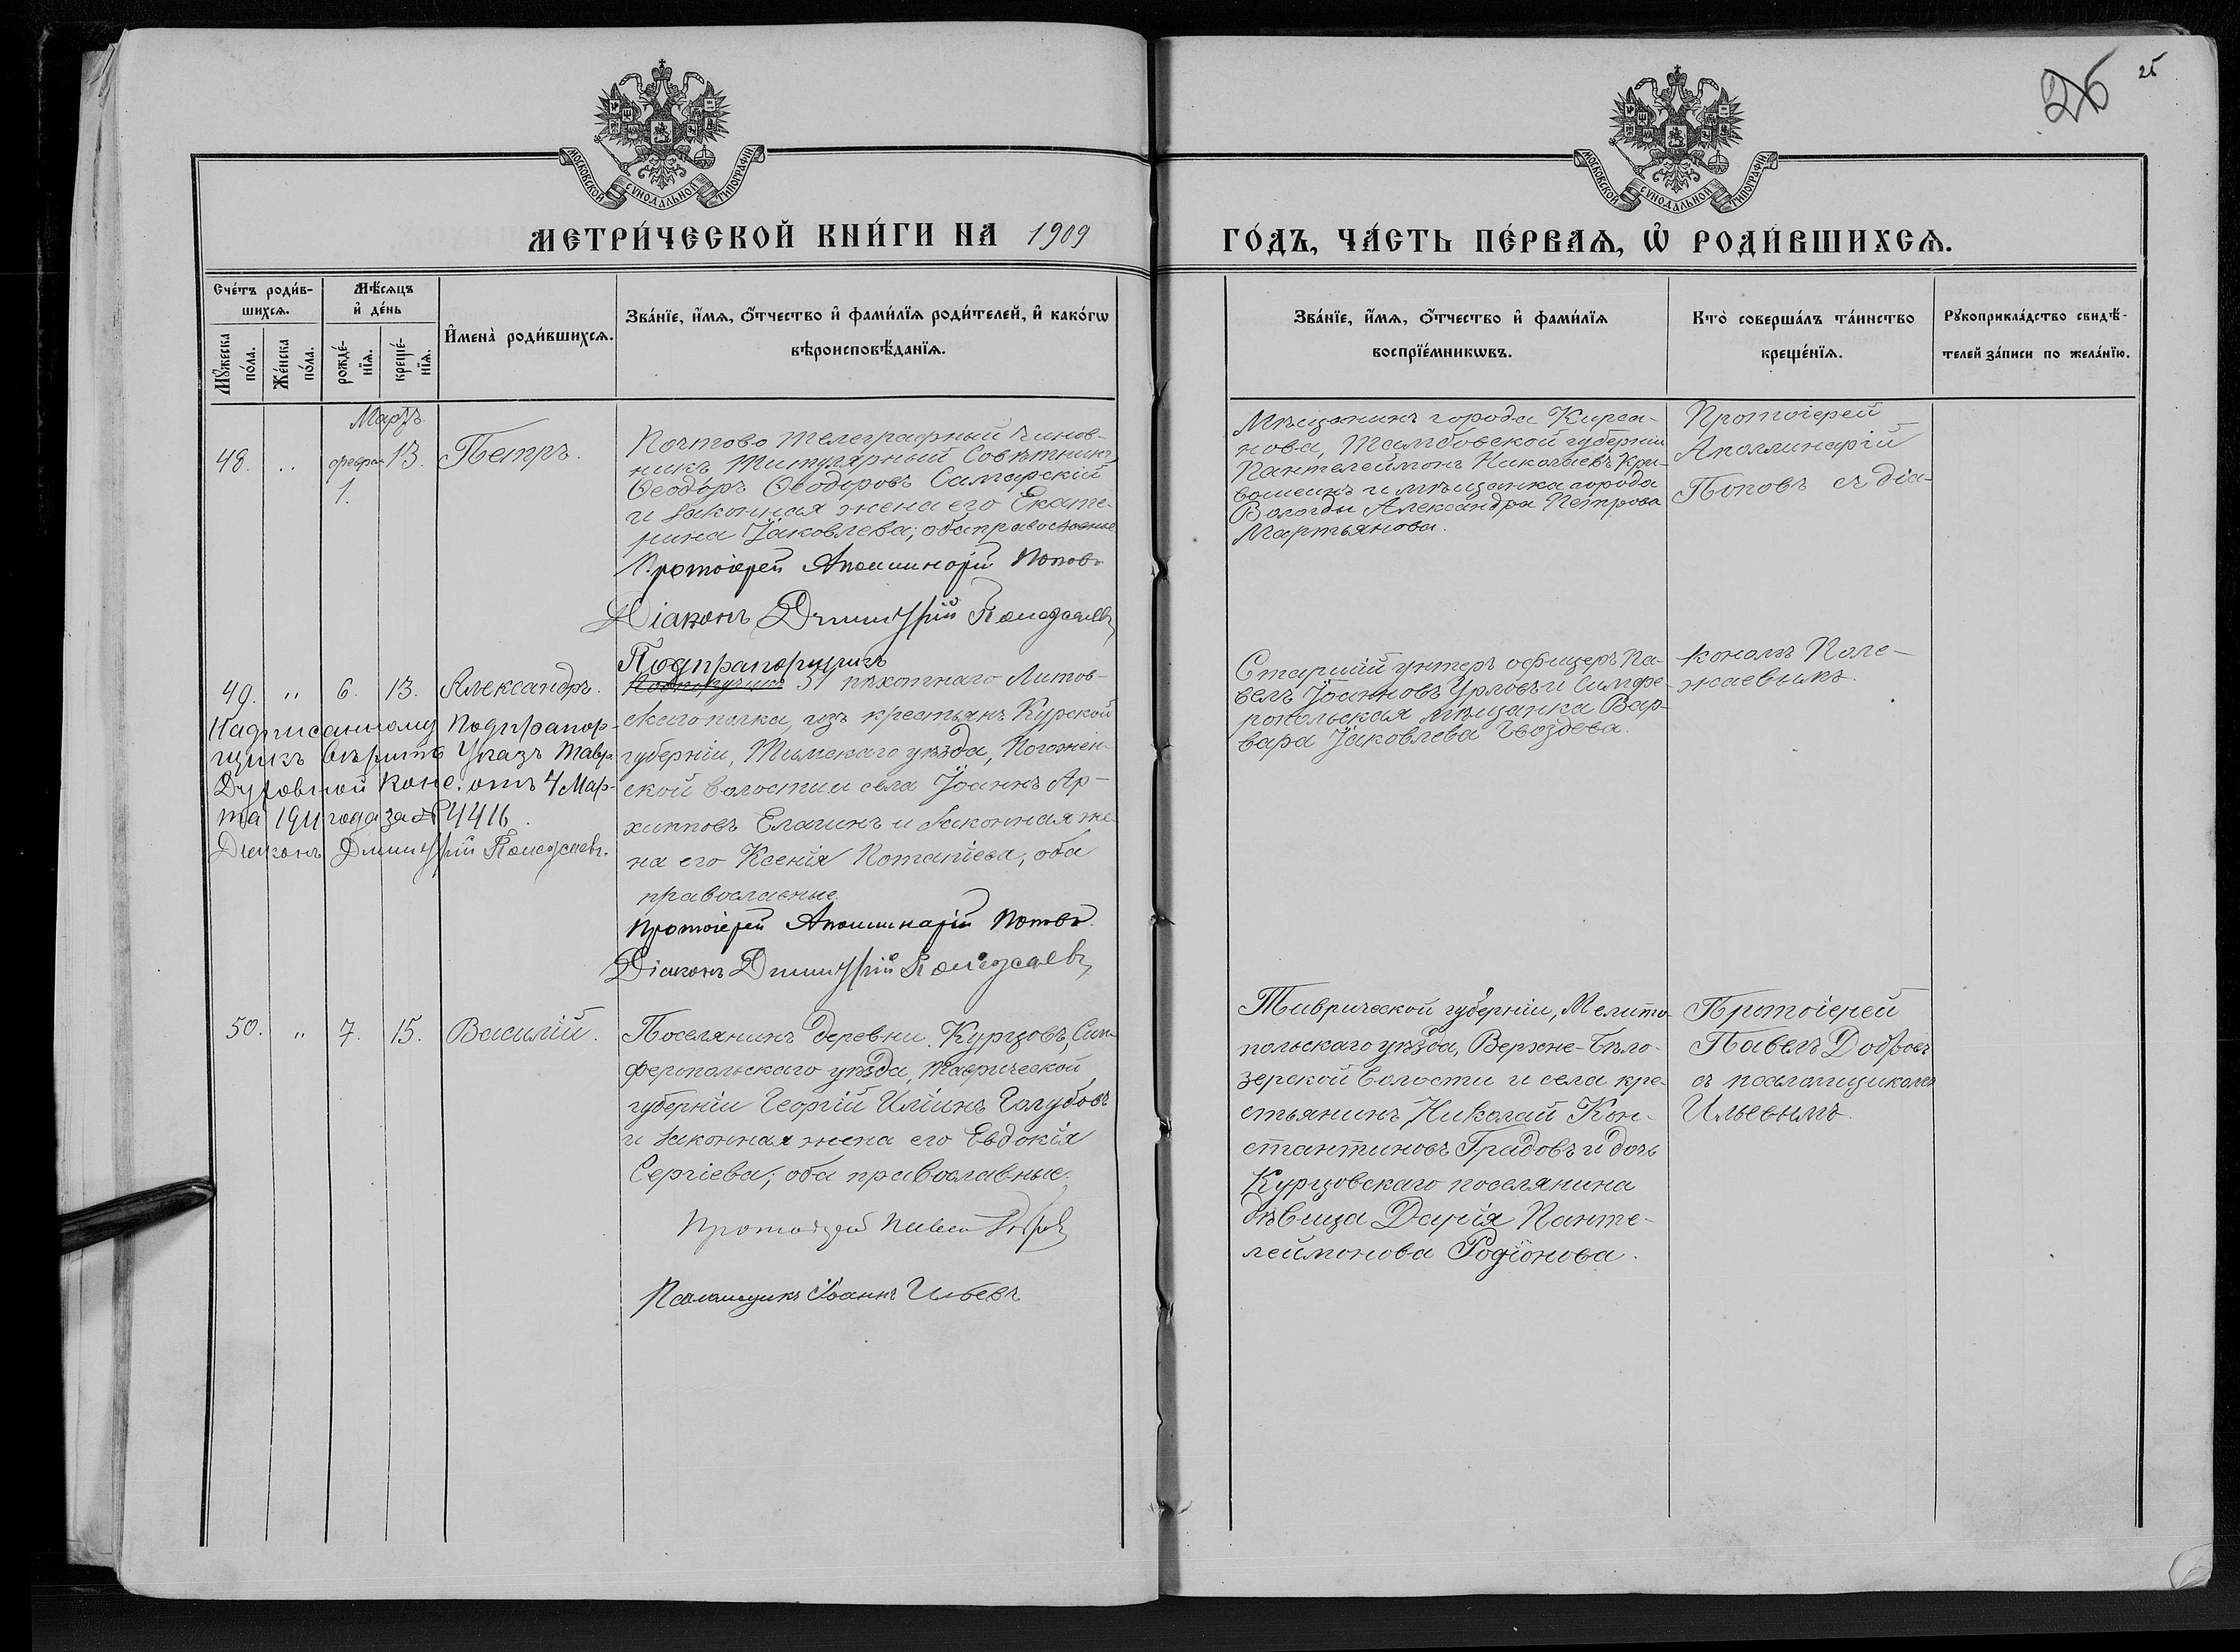 26 25
МОСКОВСКОЙ СѴНОДАЛЬНОЙ ТИПОГРАФІИ
МОСКОВСКОЙ СѴНОДАЛЬНОЙ ТИПОГРАФІИ
МЕТРИ́ЧЕСКОЙ КНИ́ГИ НА 1909
ГО́ДЪ, ЧА́СТЬ ПЕ́РВАѦ, Ѡ҆ РОДИ́ВШИХСѦ.
Сче́тъ роди́в-
шихсѧ.
Мꙋ́жеска по́ла.
Же́нска по́ла.
Мѣ́сѧцъ
и҆ де́нь
рожде́-
нїѧ.
креще́-
нїѧ.
И҆мена̀ роди́вшихсѧ.
Зва́нїе, и҆́мѧ, ѻ҆́тчество и҆ фами́лїѧ роди́телей, и҆ како́гѡ
вѣроисповѣ́данїѧ.
Зва́нїе, и҆́мѧ, ѻ҆́тчество и҆ фами́лїѧ
воспрїе́мникѡвъ.
Кто̀ соверша́лъ та́инство
креще́нїѧ.
Рꙋкоприкла́дство свидѣ́-
телей за́писи по жела́нїю.
Мартъ
48. „ феврал 13. Петръ.
1.
Почтово телеграфный чинов-
никъ Титулярный Совѣтникъ
Ѳеодоръ Ѳеодоровъ Самарскій
и законная жена его Екате-
рина Іаковлева; оба православные
Протоіерей Аполлинарій Поповъ
Діаконъ Димитрій Полежаевъ
Мѣщанинъ города Кирса-
нова, Тамбовской губерніи
Пантелеймонъ Николаевъ Кри-
вошеинъ и мѣщанка города
Вологды Александра Петрова
Мартьянова.
Протоіерей
Аполлинарій
Поповъ съ діа-
49. „ 6. 13. Александръ.
Подпрапорщикъ
Подпоручикъ 51 пѣхотнаго Литов-
скаго полка, изъ крестьянъ Курской
губерніи, Тимскаго уѣзда, Погожен-
ской волости и села Іоаннъ Ар-
хиповъ Елагинъ и законная же-
на его Ксенія Потапіева, оба
православные.
Протоіерей Аполлинарій Поповъ.
Діаконъ Димитрій Полежаевъ
Надписанному Подпрапор-
щикъ вѣрить Указъ Тавр.
Духовной Конс. отъ 4 Мар-
та 1911 года за № 4416.
Диаконъ Димитрій Полежаевъ.
Старшій унтеръ офицеръ Па-
велъ Іоанновъ Урловъ и Симфе-
ропольская мѣщанка Вар-
вара Іаковлева Гвоздева.
кономъ Поле-
жаевымъ.
50. „ 7. 15. Василій.
Поселянинъ деревни Курцовъ, Сим-
феропольскаго уѣзда, Таврической
губерніи Георгій Иліинъ Голубовъ
и законная жена его Евдокія
Сергіева; оба православные.
Протоіерей Павелъ Добровъ
Псаломщикъ Іоаннъ Ильевъ
Таврической губерніи, Мелито-
польскаго уѣзда, Верхне-Бѣло-
зерской волости и села кре-
стьянинъ Николай Кон-
стантиновъ Градовъ и дочь
Курцовскаго поселянина
дѣвица Дарія Панте-
леймонова Родіонова.
Протоіерей
Павелъ Добровъ
съ псаломщикомъ
Ильевымъ.